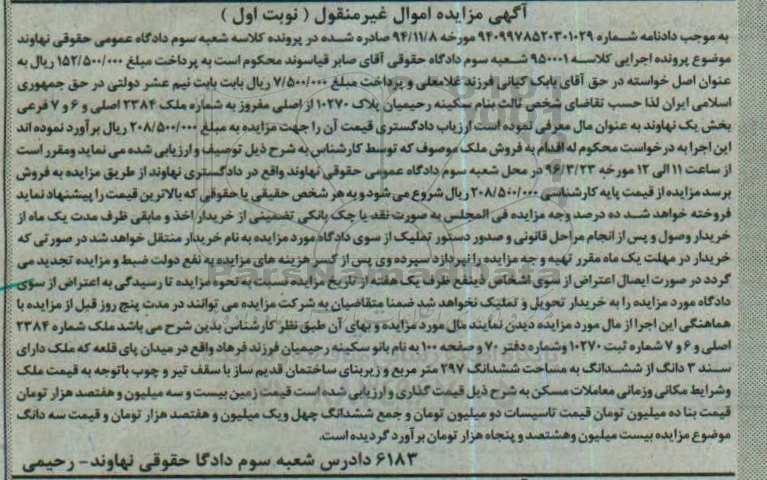 آگهی مزایده اموال غیرمنقول ( نوبت اول )
به موجب دادنامه شماره ۹۴۰۹۹۷۸۵۲۰۳۰۱۰۲۹ مورخه ۹۴/۱۱/۸ صادره شده در پرونده کلاسه شعبه سوم دادگاه عمومی حقوقی نهاوند
موضوع پرونده اجرایی کلاسه ۹۵۰۰۰۱ شعبه سوم دادگاه حقوقی آقای صابر قیاسوند محکوم است به پرداخت مبلغ ۱۵۲/۵۰۰/۰۰۰ ریال به
عنوان اصل خواسته در حق آقای بابک کیانی فرزند غلامعلی و پرداخت مبلغ ۷/۵۰۰/۰۰۰ ریال بابت بابت نیم عشر دولتی در حق جمهوری
اسلامی ایران لذا حسب تقاضای شخص ثالث بنام سکینه رحیمیان پلاک ۱۰۲۷۰ از اصلی مفروز به شماره ملک ۲۳۸۴ اصلی و ۶ و ۷ فرعی
بخش یک نهاوند به عنوان مال معرفی نموده است ارزیاب دادگستری قیمت آن را جهت مزایده به مبلغ ۲۰۸/۵۰۰/۰۰۰ ریال برآورد نموده اند
این اجرا به درخواست محکوم له اقدام به فروش ملک موصوف که توسط کارشناس به شرح ذیل توصیف و ارزیابی شده می نماید ومقرر است
از ساعت ۱۱ الی ۱۲ مورخه ۹۶/۳/۲۳ در محل شعبه سوم دادگاه عمومی حقوقی نهاوند واقع در دادگستری نهاوند از طریق مزایده به فروش
برسد مزایده از قیمت پایه کارشناسی ۲۰۸/۵۰۰/۰۰۰ ریال شروع می شود و به هر شخص حقیقی یا حقوقی که بالاترین قیمت را پیشنهاد نماید
فروخته خواهد شد ده درصد وجه مزایده فی المجلس به صورت نقد یا چک بانکی تضمینی از خریدار اخذ و مابقی ظرف مدت یک ماه از
خریدار وصول و پس از انجام مراحل قانونی و صدور دستور تملیک از سوی دادگاه مورد مزایده به نام خریدار منتقل خواهد شد در صورتی که
خریدار در مهلت یک ماه مقرر تهیه وجه مزایده را نپردازد سپرده وی پس از کسر هزینه های مزایده به نفع دولت ضبط و مزایده تجدید می
گردد در صورت ایصال اعتراض از سوی اشخاص ذینفع ظرف یک هفته از تاریخ مزایده نسبت به نحوه مزایده تا رسیدگی به اعتراض از سوی
دادگاه مورد مزایده را به خریدار تحویل و تملیک نخواهد شد ضمنا متقاضیان به شرکت مزایده می توانند در مدت پنج روز قبل از مزایده با
هماهنگی این اجرا از مال مورد مزایده دیدن نمایند مال مورد مزایده و بهای آن طبق نظر کارشناس بدین شرح می باشد ملک شماره ۲۳۸۴
اصلی و ۶ و ۷ شماره ثبت ۱۰۲۷۰ وشماره دفتر ۷۰ و صفحه ۱۰۰ به نام بانو سکینه رحیمیان فرزند فرهاد واقع در میدان پای قلعه که ملک دارای
سند ۳ دانگ از ششدانگ به مساحت ششدانگ ۲۹۷ متر مربع و زیربنای ساختمان قدیم ساز با سقف تیر و چوب باتوجه به قیمت ملک
وشرایط مکانی وزمانی معاملات مسکن به شرح ذیل قیمت گذاری و ارزیابی شده است قیمت زمین بیست و سه میلیون و هفتصد هزار تومان
قیمت بنا ده میلیون تومان قیمت تاسیسات دو میلیون تومان و جمع ششدانگ چهل ویک میلیون و هفتصد هزار تومان و قیمت سه دانگ
موضوع مزایده بیست میلیون وهشتصد و پنجاه هزار تومان برآورد گردیده است.
۶۱۸۳ دادرس شعبه سوم دادگا حقوقی نهاوند- رحیمی
ParsNamadData